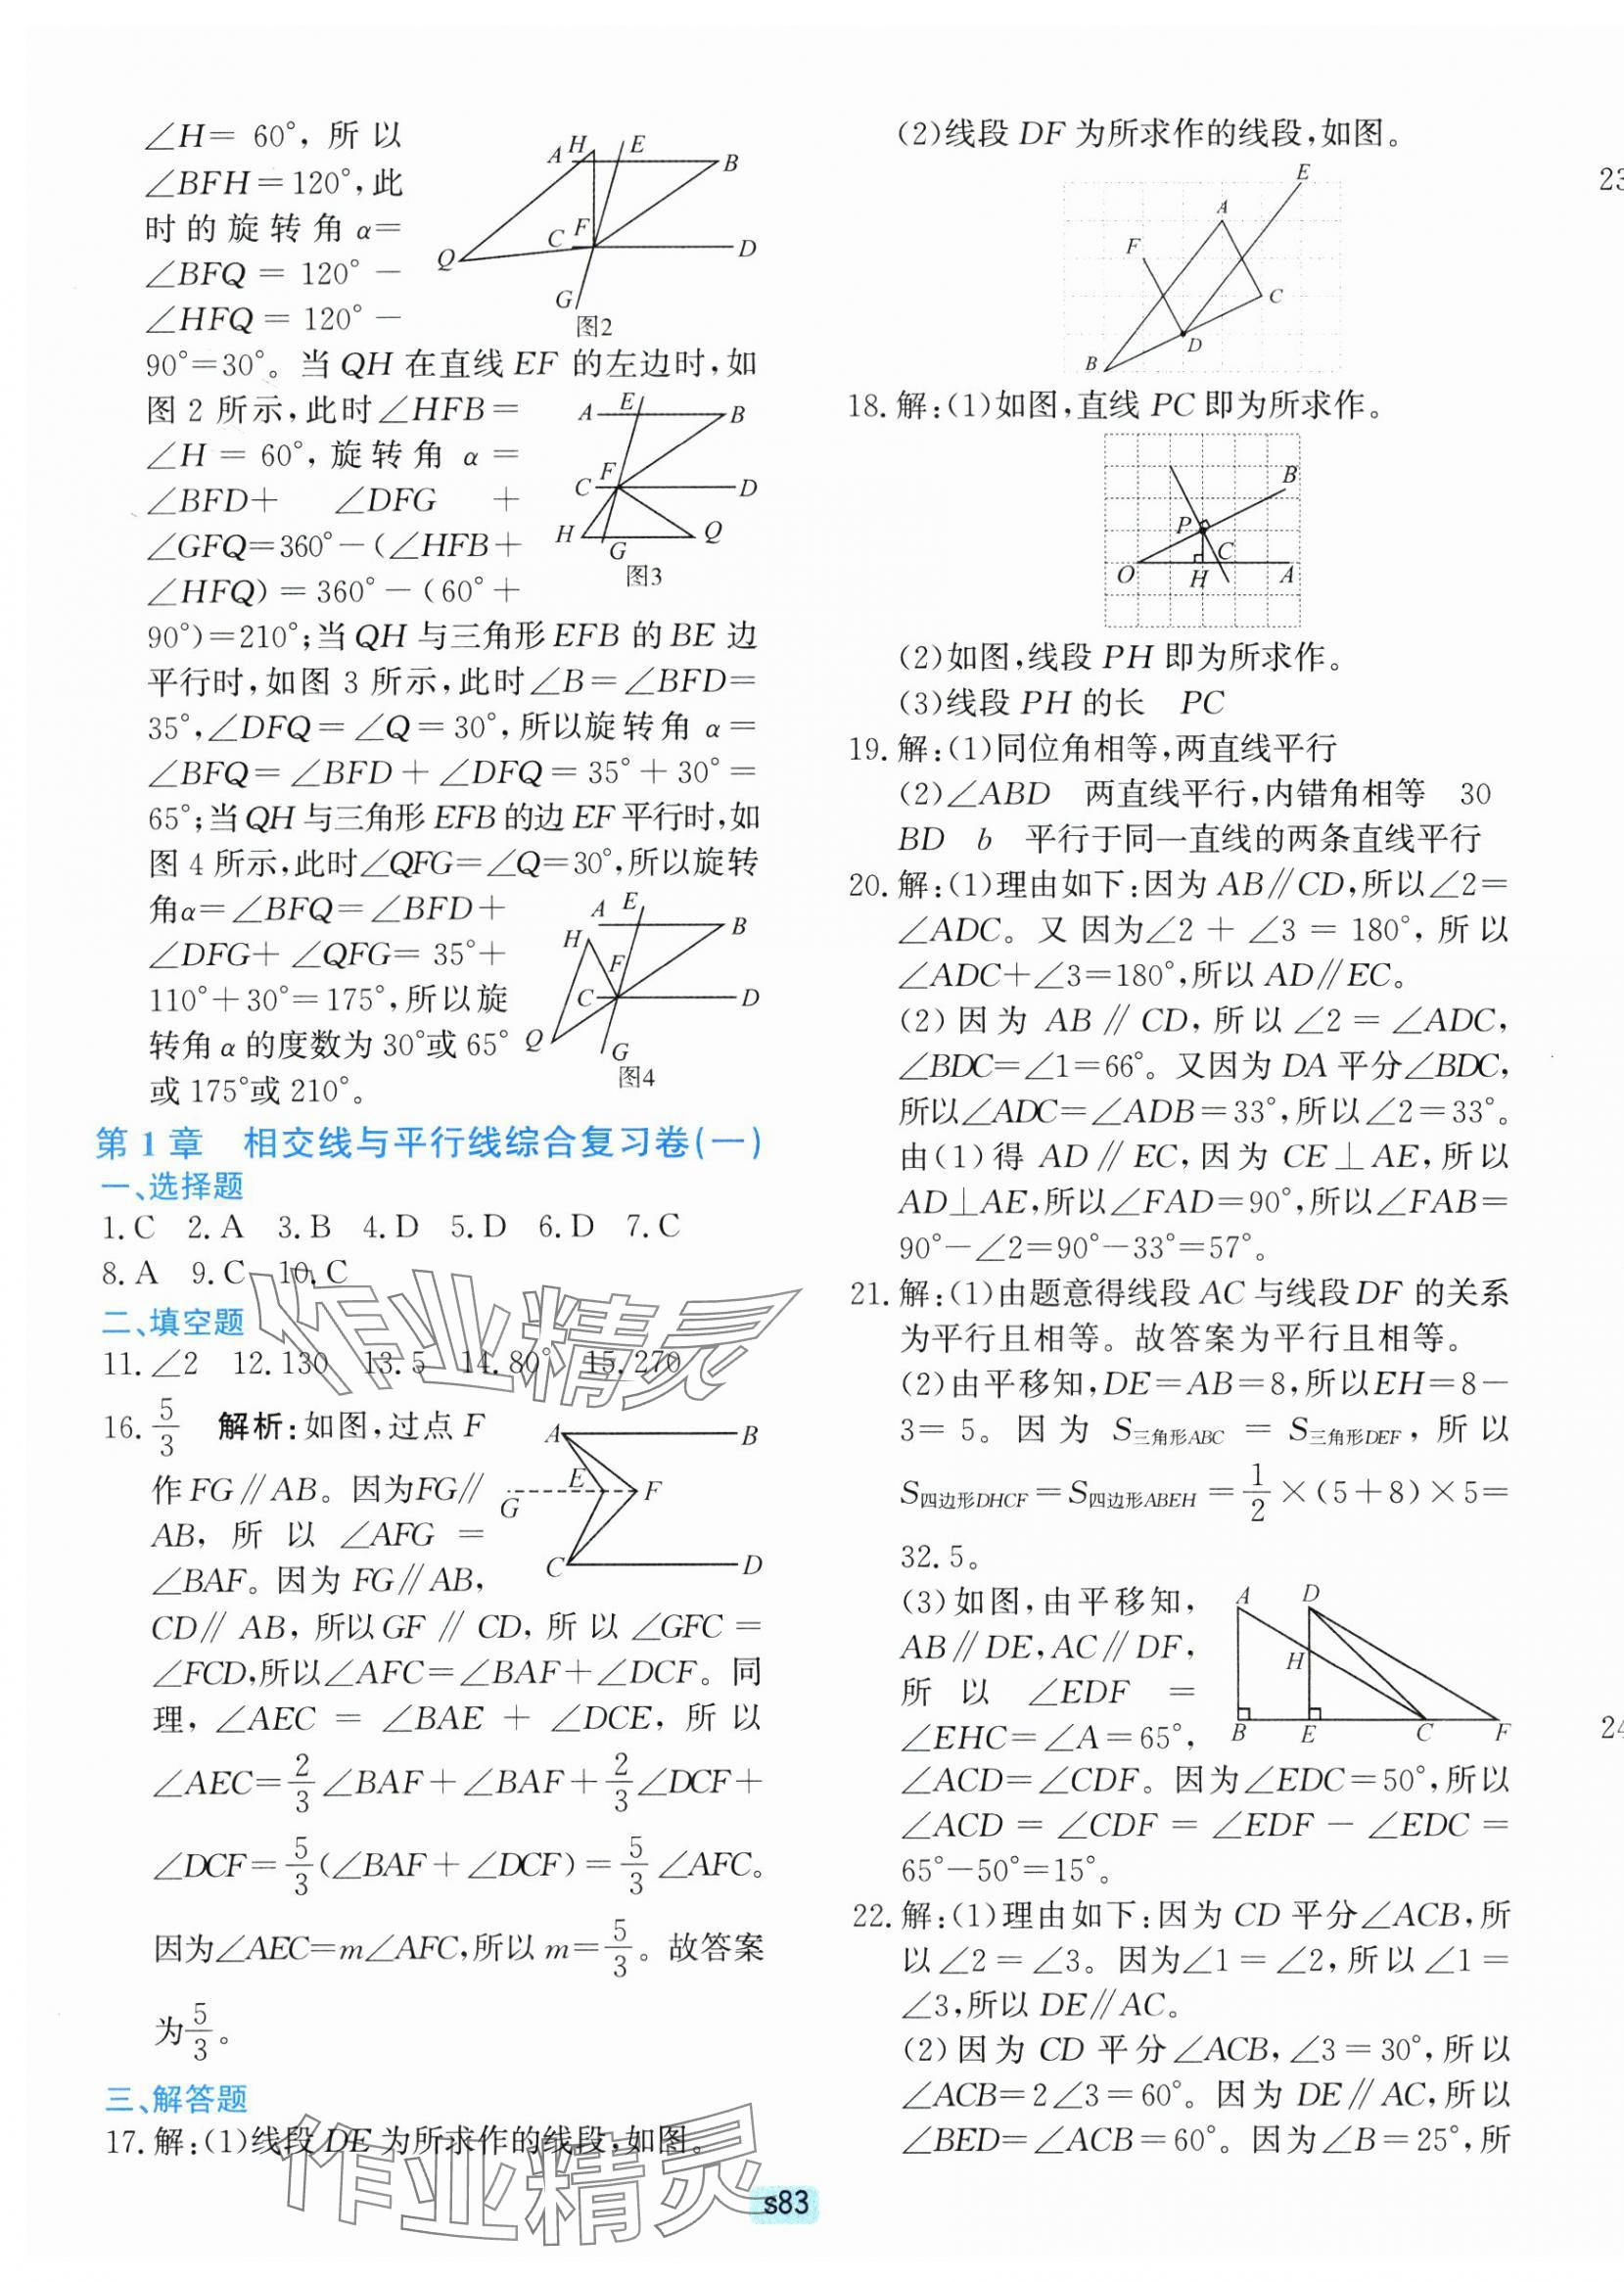 ∠H= 60°, 所以
∠BFH=120°,此
时的旋转角 α=
∠BFQ = 120° -
∠HFQ = 120° -
A H E B
C F D
Q
G
图2
90°=30°。当QH 在直线 EF 的左边时,如
图 2 所示,此时∠HFB=
∠H = 60°, 旋转角 α =
∠BFD+ ∠DFG +
∠GFQ=360°-(∠HFB+
∠HFQ) = 360° - (60° +
A E B
C F D
H G Q
图3
90°)=210°;当QH 与三角形EFB 的BE 边
平行时,如图 3 所示,此时∠B=∠BFD=
35°,∠DFQ=∠Q=30°,所以旋转角 α=
∠BFQ=∠BFD+∠DFQ=35°+30°=
65°;当QH与三角形EFB的边EF平行时,如
图 4 所示,此时∠QFG=∠Q=30°,所以旋转
角α=∠BFQ=∠BFD+
∠DFG+∠QFG=35°+
110°+30°=175°,所以旋
转角α的度数为30°或65°
或175°或210°。
A E B
H F
C D
Q G
图4
第1章 相交线与平行线综合复习卷(一)
一、选择题
1.C 2.A 3.B 4.D 5.D 6.D 7.C
8.A 9.C 10.C
二、填空题
11.∠2 12.130 13.5 14.80° 15.270
16. 5/3 解析:如图,过点 F
作FG∥AB。因为FG∥
AB, 所以 ∠AFG =
∠BAF。因为 FG∥AB,
A B
E F
G
C D
CD∥ AB, 所以GF ∥ CD, 所以 ∠GFC =
∠FCD,所以∠AFC=∠BAF+∠DCF。同
理, ∠AEC = ∠BAE + ∠DCE, 所以
∠AEC=2/3∠BAF+∠BAF+2/3∠DCF+
∠DCF=5/3(∠BAF+∠DCF)=5/3∠AFC。
因为∠AEC=m∠AFC,所以m=5/3。故答案
为5/3。
三、解答题
17.解:(1)线段DE为所求作的线段,如图。
作业精灵
作业精灵
(2)线段 DF 为所求作的线段,如图。
E
A
F
C
D
B
18.解:(1)如图,直线 PC 即为所求作。
B
P
C
O H A
(2)如图,线段 PH 即为所求作。
(3)线段 PH 的长 PC
19.解:(1)同位角相等,两直线平行
(2)∠ABD 两直线平行,内错角相等 30
BD b 平行于同一直线的两条直线平行
20.解:(1)理由如下:因为 AB∥CD,所以∠2=
∠ADC。又因为∠2 + ∠3 = 180°, 所以
∠ADC+∠3=180°,所以 AD∥EC。
(2) 因为 AB ∥ CD, 所以 ∠2 = ∠ADC,
∠BDC=∠1=66°。又因为 DA 平分∠BDC,
所以∠ADC=∠ADB=33°,所以∠2=33°。
由(1)得 AD∥EC,因为 CE⊥AE,所以
AD⊥AE,所以∠FAD=90°,所以∠FAB=
90°-∠2=90°-33°=57°。
21.解:(1)由题意得线段 AC 与线段DF 的关系
为平行且相等。故答案为平行且相等。
(2)由平移知,DE=AB=8,所以EH=8-
3=5。因为 S三角形ABC = S三角形DEF, 所以
S四边形DHCF=S四边形ABEH=1/2×(5+8)×5=
32.5。
(3)如图,由平移知,
AB∥DE,AC∥DF,
所以 ∠EDF =
∠EHC=∠A=65°,
A D
H
B E C F
∠ACD=∠CDF。因为∠EDC=50°,所以
∠ACD = ∠CDF = ∠EDF - ∠EDC =
65°-50°=15°。
22.解:(1)理由如下:因为 CD 平分∠ACB,所
以∠2=∠3。因为∠1=∠2,所以∠1=
∠3,所以 DE∥AC。
(2)因为 CD 平分∠ACB,∠3=30°,所以
∠ACB=2∠3=60°。因为 DE∥AC,所以
∠BED=∠ACB=60°。因为∠B=25°,所
23
24
s83